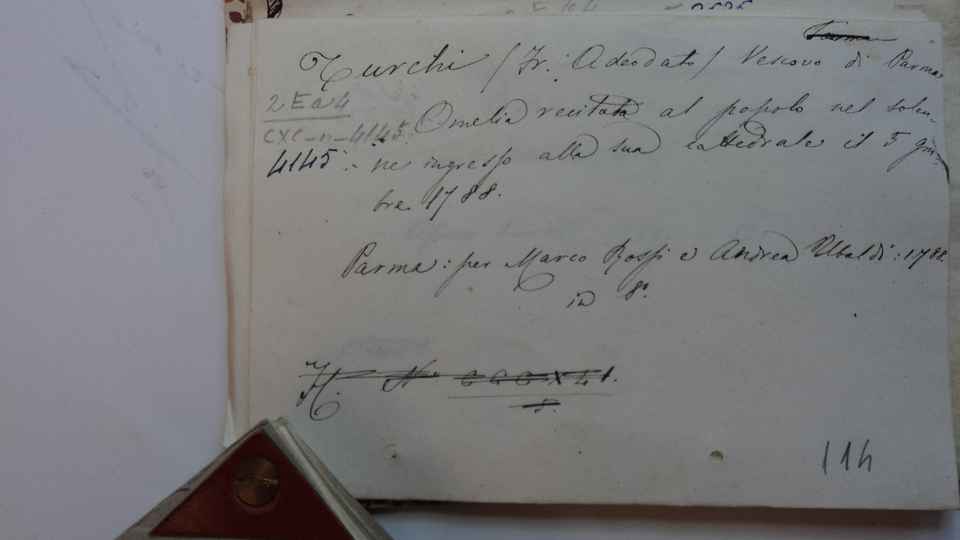 Turchi / Fr: Adeodato / Vescovo di Parma,
2 E a 4
CXC-n-4145.
4145:-
Omelia recitata al popolo nel solen-
ne ingresso alla sua cattedrale il 5 9m-
bre 1788.
Parma: per Marco Rossi e Andrea Ubaldi: 1788
in 8.°
H. N.°
8.
114